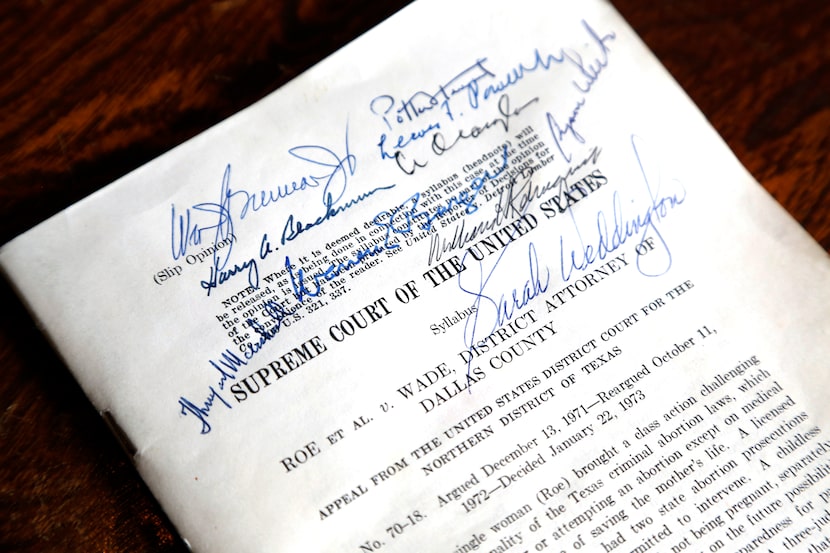 Potter Stewart
Lewis F. Powell Jr
Byron White
W O Douglas
Wm J Brennan Jr
Harry A. Blackmun
Warren E Burger
William H Rehnquist
Thurgood Marshall
Sarah Weddington
(Slip Opinion)
NOTE: Where it is deemed desirable, a syllabus (headnote) will
be released, as is being done in connection with this case, at the time
the opinion is issued. The syllabus constitutes no part of the opinion
of the Court but has been prepared by the Reporter of Decisions for
the convenience of the reader. See United States v. Detroit Lumber
Co., 200 U.S. 321, 337.
SUPREME COURT OF THE UNITED STATES
Syllabus
ROE ET AL. v. WADE, DISTRICT ATTORNEY OF
DALLAS COUNTY
APPEAL FROM THE UNITED STATES DISTRICT COURT FOR THE
NORTHERN DISTRICT OF TEXAS
No. 70–18. Argued December 13, 1971—Reargued October 11,
1972—Decided January 22, 1973
single woman (Roe) brought a class action challenging
of the Texas criminal abortion laws, which
or attempting an abortion except on medical
of saving the mother's life. A licensed
had two state abortion prosecutions
to intervene. A childless
not being pregnant, separately
on the future
for